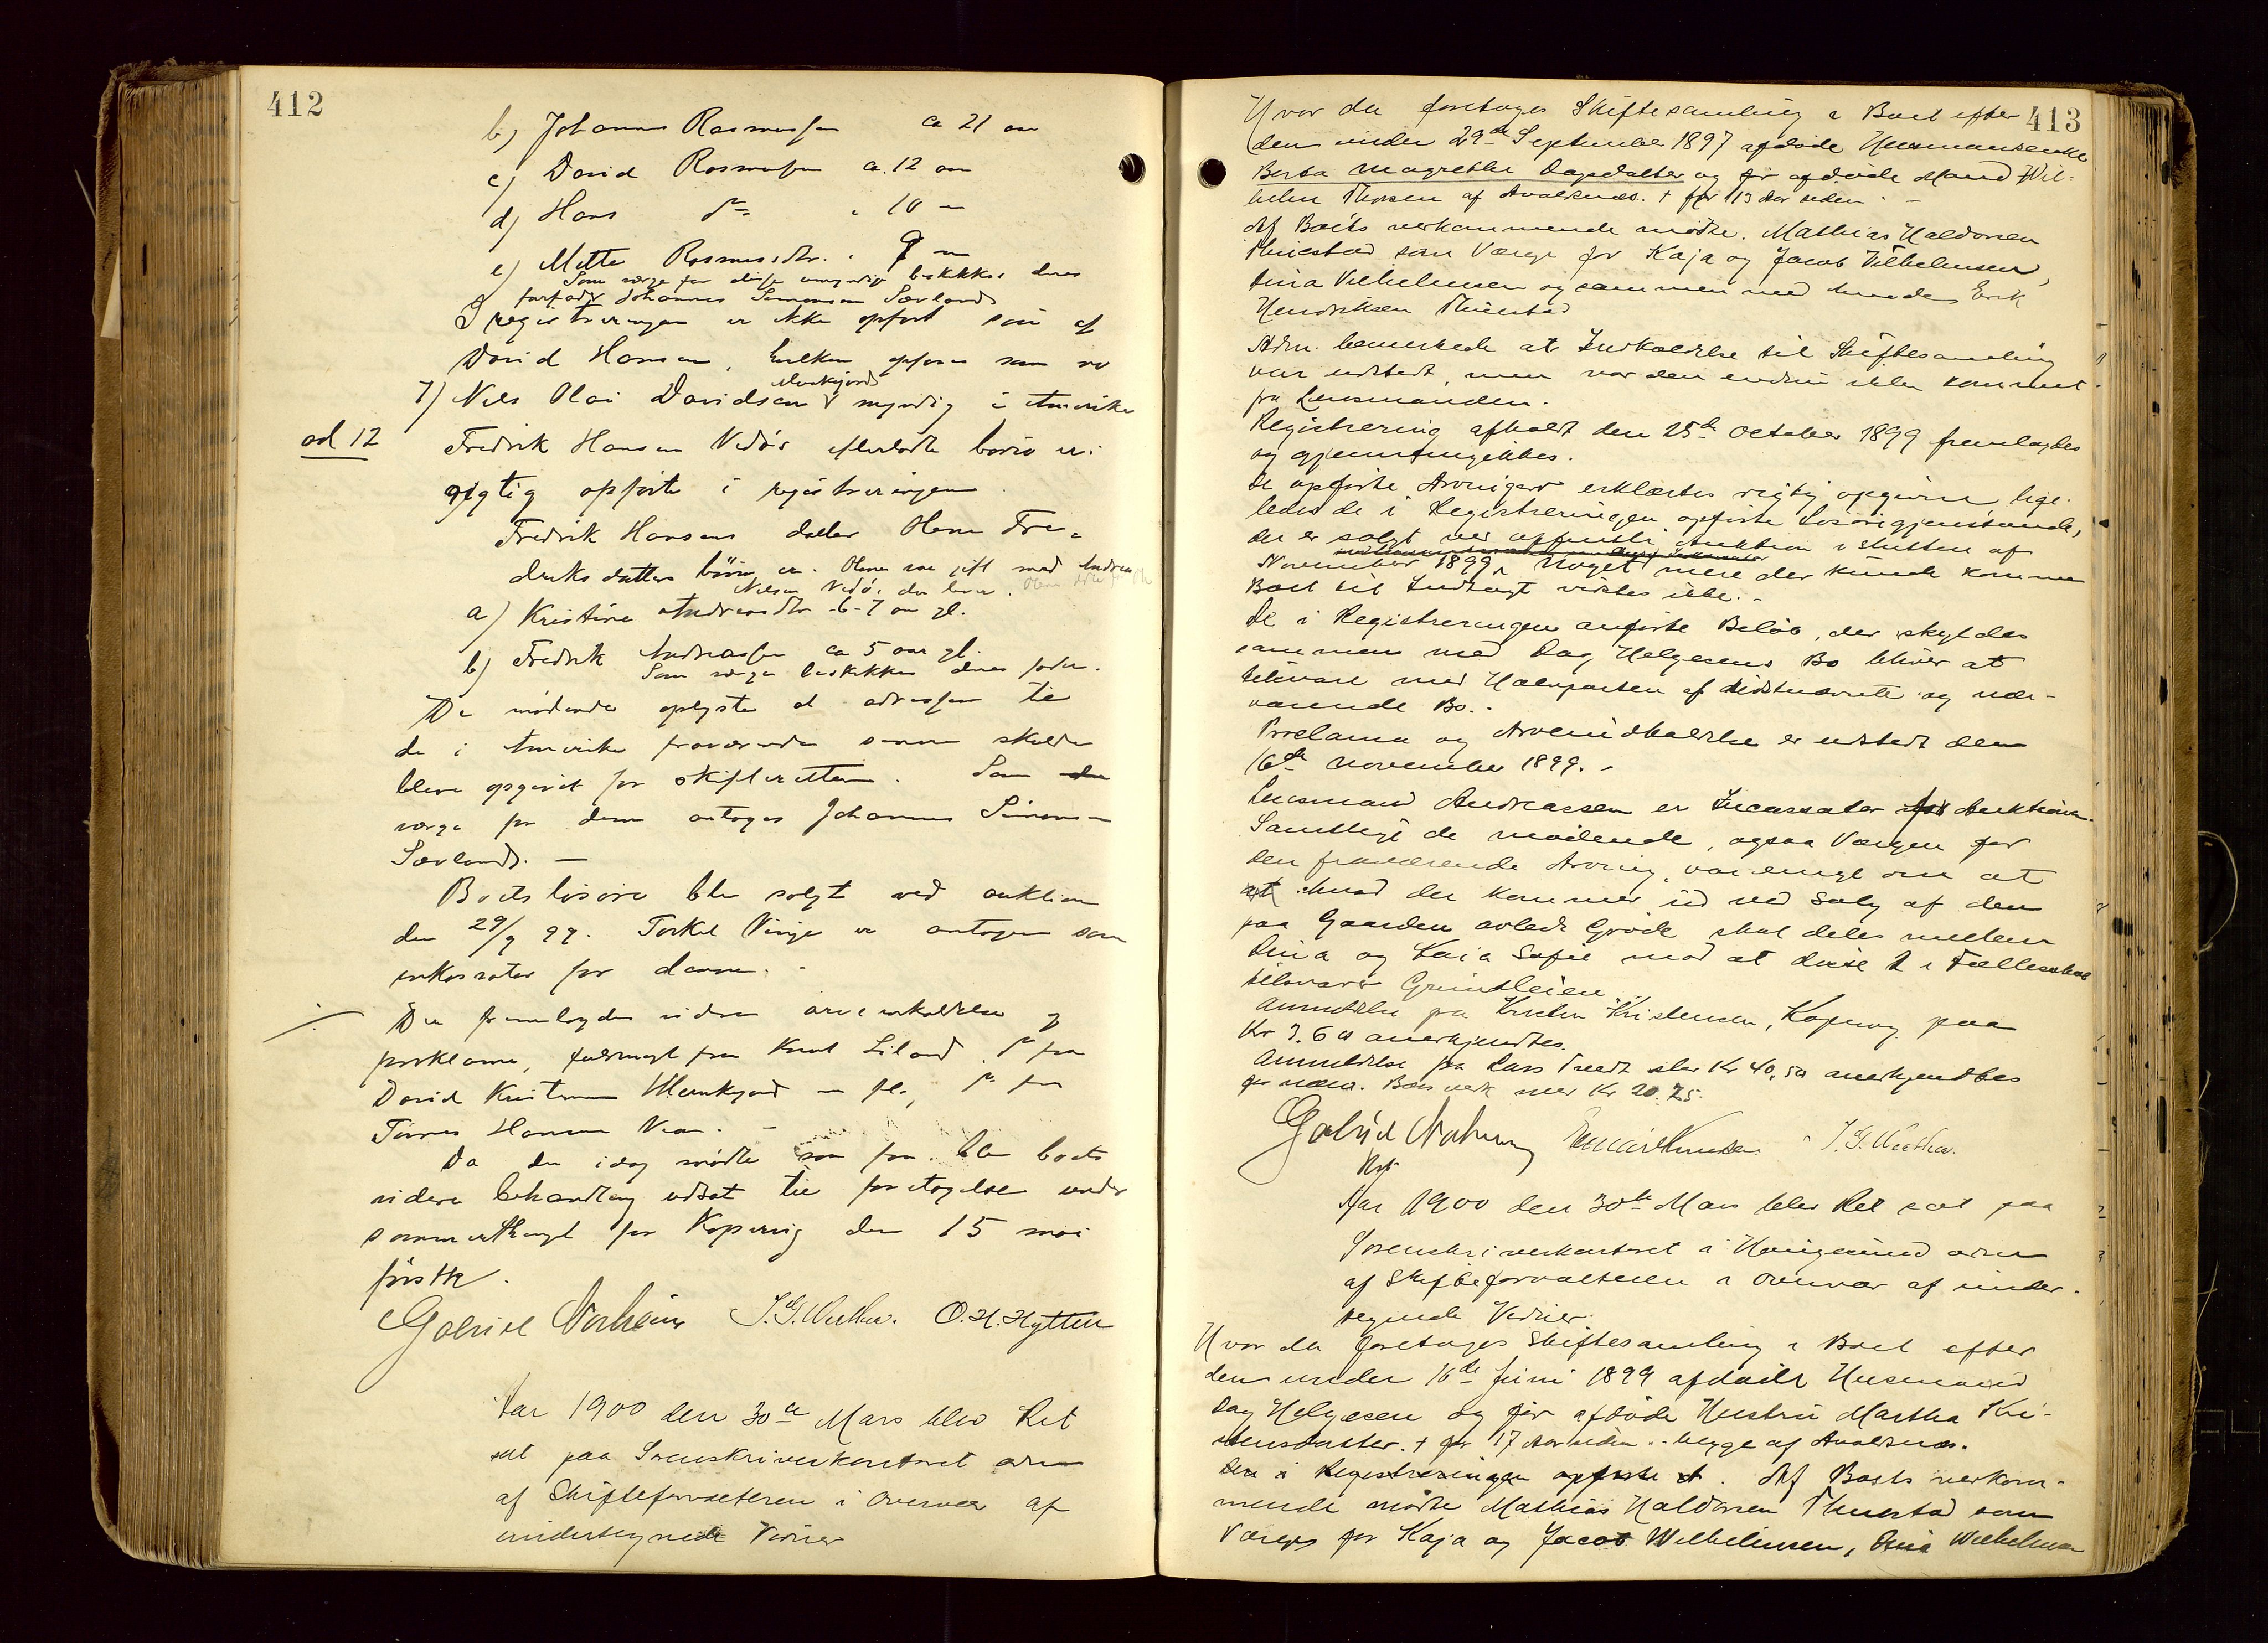 412
b) Johannes Rasmussen ca 21 aar
c) David Rasmussen ca. 12 aar
d) Hans do " 10 "
e) Mette Rasmusdtr. " 9 "
Som værge for disse umyndige beskikkes deres
farfader Johannes Simonsen Sævland
I registreringen er ikke opført søn af
David Hansen, hvilken opføres som no
7) Nils Olai Davidsen myndig i Amerika
ad 12 Fredrik Hansen Vedøs efterladte børn er
rigtig opførte i registreringen.
Fredrik Hansens datter Olene Fre-
driksdatters børn er. Olene var gift med Andreas
Nilsen Vedø, der lever.
a) Kristine Andreasdtr 6-7 aar gl.
b) Fredrik Andreassen ca 5 aar gl.
Som værge beskikkes deres fader.
De mødende oplyste at adressen til
de i Amerika fraværende sønner skulde
blive opgivet for skifteretten. Som
værge for dem antoges Johannes Simonsen
Sævland. —
Boets løsøre blev solgt ved auktion
den 29/9 99. Torkel Vinje er antagen som
inkassator for denne. -
Der fremlagdes videre arveindkaldelse og
proklama, fuldmagt fra Knut Liland, do fra
David Kristensen Munkejord, do fra
Tørres Hansen Vea. -
Da der idag mødte saa faa blev boets
videre behandling udsat til foretagelse under
sommerthinget for Kopervig den 15 mai
førstk.
Gabriel Norheim J. G. Wethw. O. H. Hytten
Aar 1900 den 30te Mars blev Ret
sat paa Sorenskriverkontoret adm
af Skifteforvalteren i Overvær af
undertegnede Vidner
413
Hvor da foretages Skiftesamling i Boet efter
den under 29de September 1897 afdøde Husmandsenke
Berta Magrethe Dagsdatter og før afdøde Mand Wil-
helm Thorsen af Avaldsnes. † for 13 Aar siden. -
Af Boets vedkommende mødte. Mathias Haldorsen
Thuestad som Værge for Kaja og Jacob Vilhelmsen,
Dina Vilhelmsen og sammen med hende Erik
Hendriksen Thuestad
Adm. bemerkede at Indkaldelse til Skiftesamling
var udstedt, men var den endnu ikke kommet
fra Lensmanden.
Registrering afholdt den 25de October 1899 fremlagdes
og gjennemgikkes.
De opførte Arvinger erklærtes rigtig opgivne lige-
ledes de i Registreringen opførte Løsøregjenstande,
der er solgt ved offentlig Auktion i Slutten af
November 1899. Noget mere der kunde komme
Boet til Indtægt vidstes ikke. -
De i Registreringen anførte Beløb, der skyldes
sammen med Dag Helgesens Bo bliver at
tilsvare med Halvparten af sidstnævnte og nær-
værende Bo. -
Proclama og Arveindkaldelse er udstedt den
16de November 1899. -
Lensmand Andreassen er Incassator for Auktionen.
Samtlige de mødende, ogsaa Værgen for
den fraværende Arving, var enige om at
hvad der kommer ind ved Salg af den
paa Gaarden avlede Grøde skal deles mellem
Dina og Kaja Sofie mod at disse 2 i Fællesskab
tilsvarer Grundleien.
Anmeldelse fra Kristen Kristensen, Kopervig paa
Kr 7.60 anerkjendtes.
Anmeldelse fra Lars Tveit stor Kr 40,50 anerkjendtes
for nærv. Bos vedk med Kr 20.25.
Gabriel Norheim Knudsen J. G. Wethw.
Aar 1900 den 30te Mars blev Ret sat paa
Sorenskriverkontoret i Haugesund adm
af Skifteforvalteren i Overvær af under-
tegnede Vidner.
Hvor da foretages Skiftesamling i Boet efter
den under 16de Juni 1899 afdøde Husmand
Dag Helgesen og før afdøde Hustru Martha Kri-
stensdatter. † for 17 Aar siden. - begge af Avaldsnes.
Den i Registreringen opførte . Af Boets vedkom-
mende mødte Mathias Haldorsen Thuestad som
Værge for Kaja og Jacob Wilhelmsen, Dina Wilhelmsen